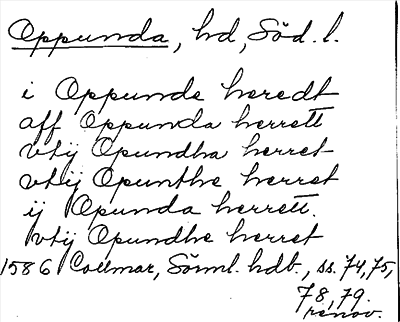 Oppunda, hd, Söd. l.
i Oppunde heredt
aff Oppunda herrett
vtij Opundha herret
vtij Opunthe herret
ij Opunda herrett.
vtij Opundhe herret
1586 Collmar, Sörml. hdb., ss. 74, 75,
78, 79.
renov.